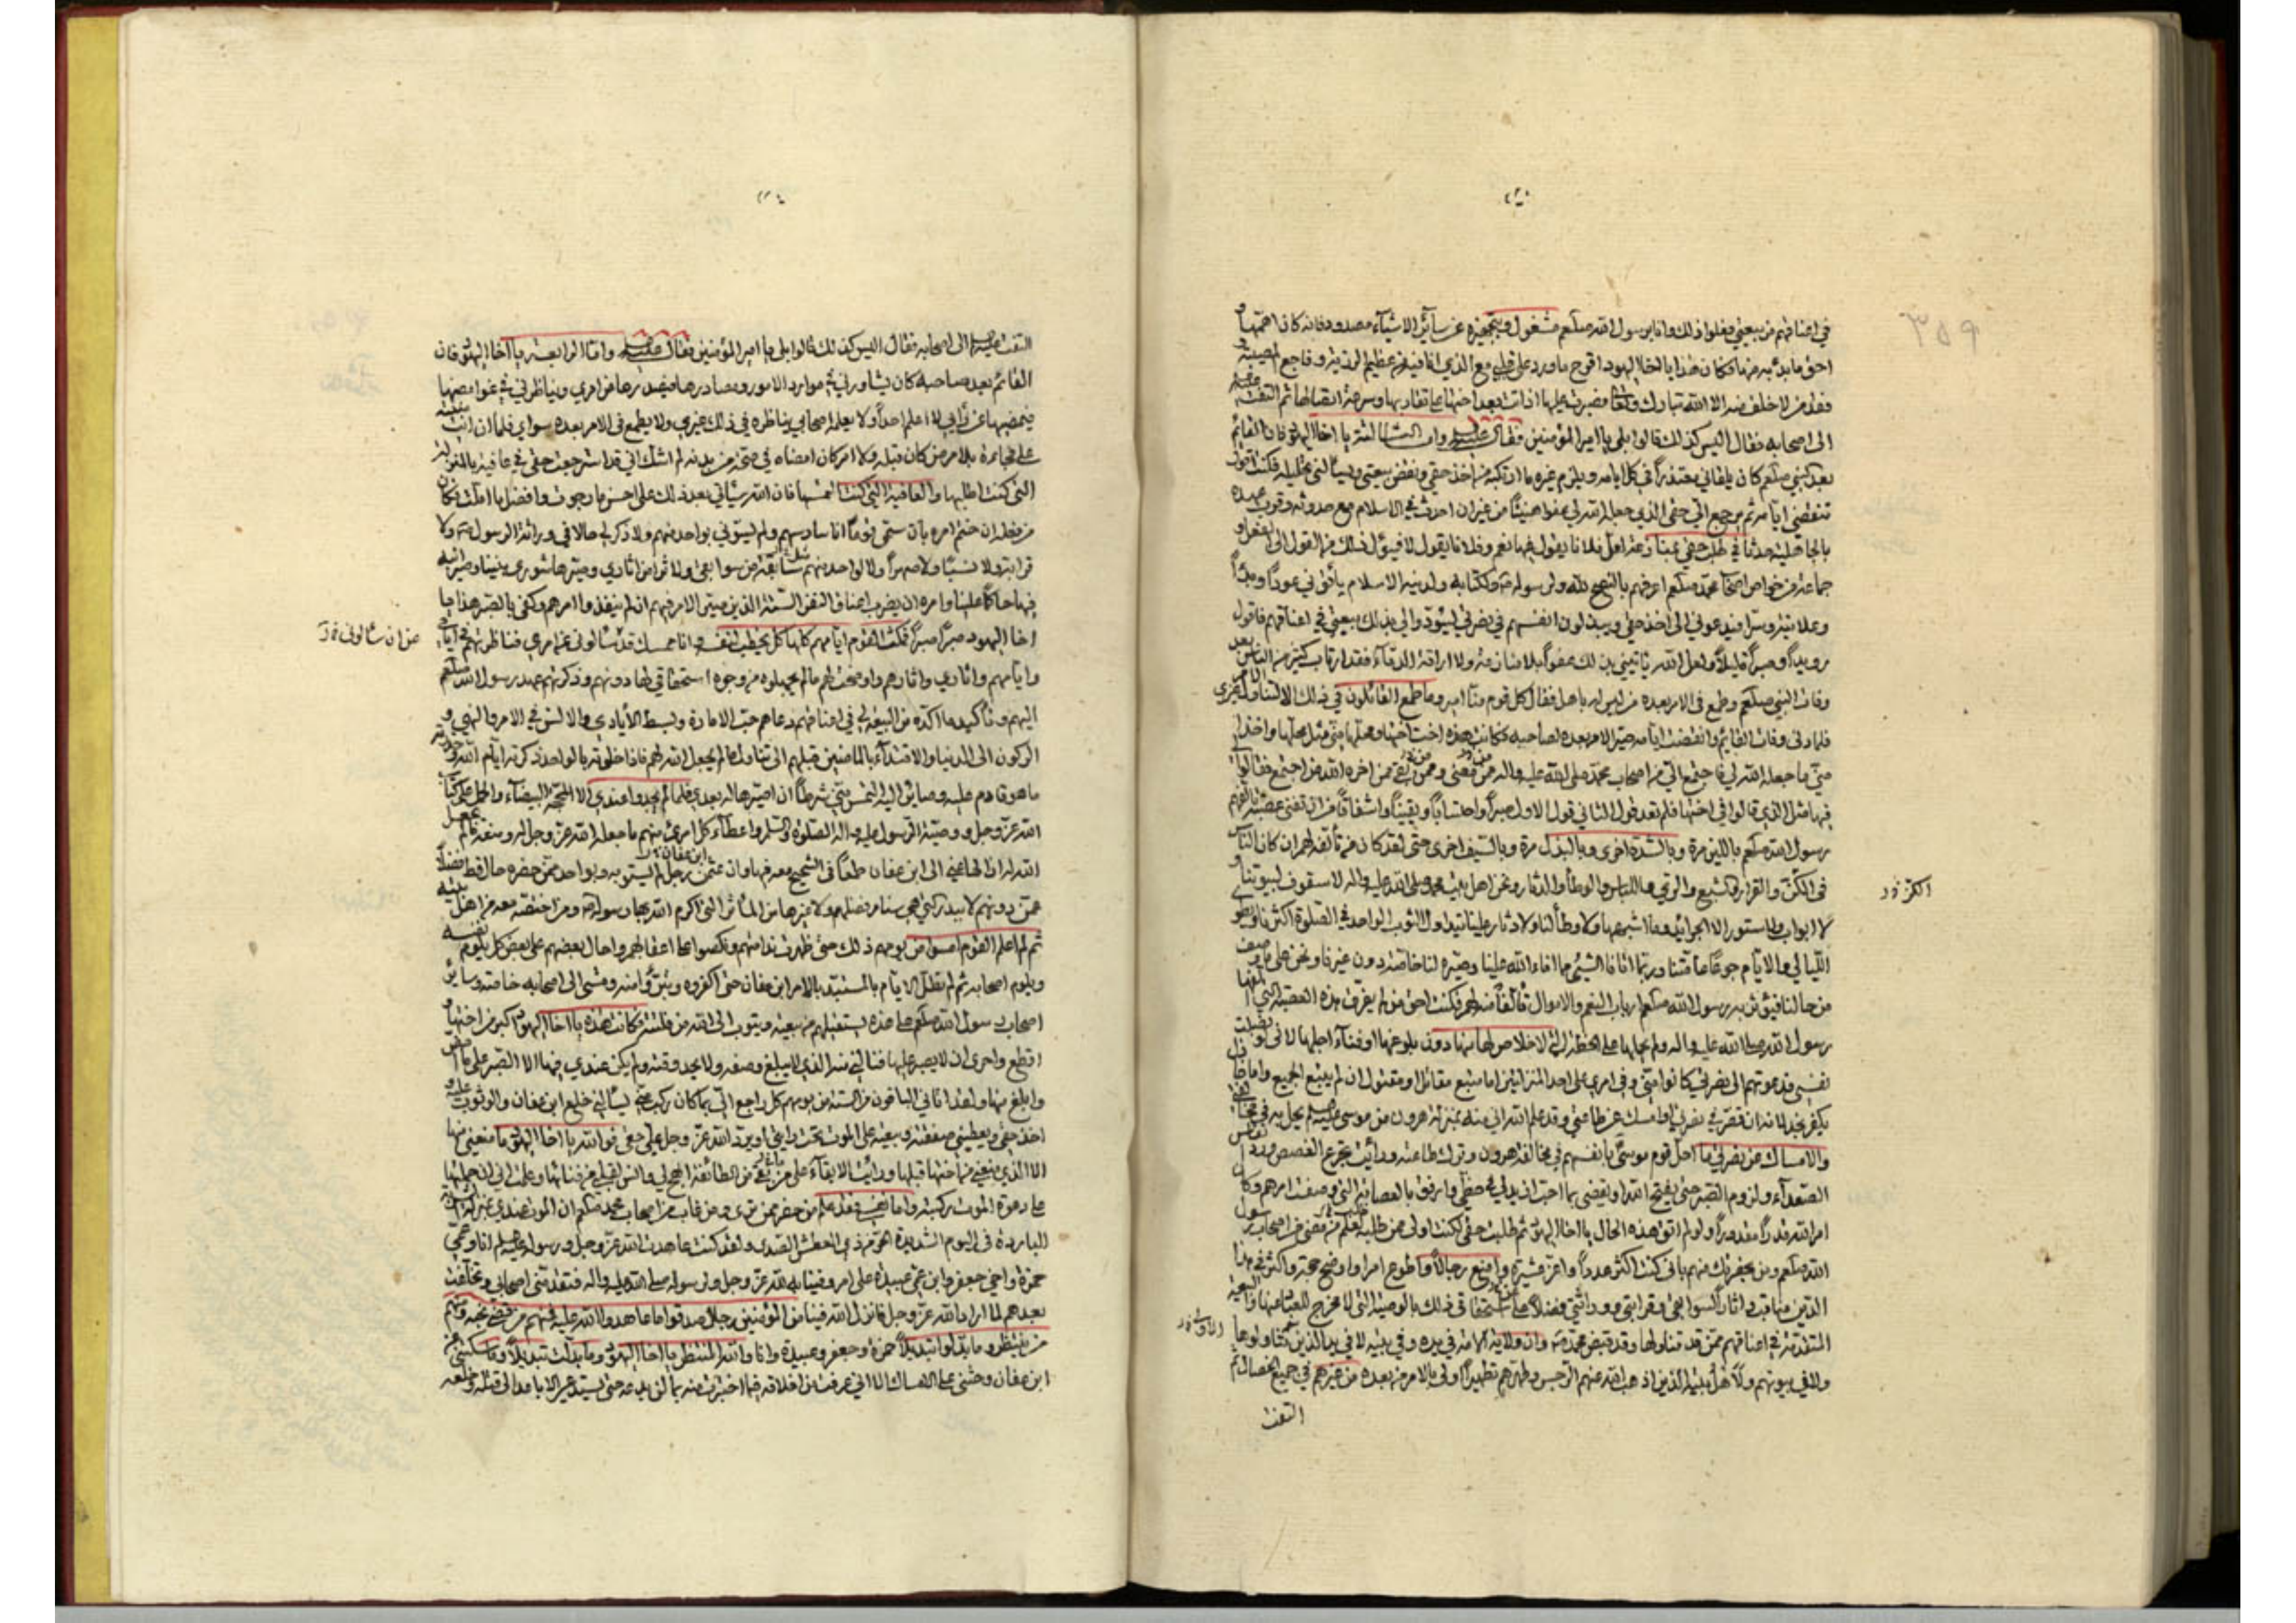 في اعناقهم من بيعتي ففعلوا ذلك وانا برسول الله صلعم مشغول وبتجهيزه عن سائر الاشياء مصدود فانه كان اهمها و
احق ما بدئ به منها فكان هذا يا اخا اليهود اقرح ما ورد على قلبي مع الذي انا فيه من عظيم الرزية وفاجع المصيبة و
فقد من لا خلف منه الا الله تبارك وتعالى فصبرت عليها اذ اتت بعد اختها على تقاربها وسرعة اتصالها ثم التفت عليه السلم
الى اصحابه فقال اليس كذلك قالوا بلى يا امير المؤمنين فقال عليه السلم واما الثالثة يا اخا اليهود فان القائم
بعد النبي صلعم كان يلقاني معتذراً في كل ايامه ويلزم غيره ما ارتكبه من اخذ حقي ونقض بيعتي ويسألني تحليله فكنت اقول
تنقضي ايامه ثم يرجع الي حقي الذي جعله الله لي عفوا هنيئاً من غير ان احدث في الاسلام مع حدوثه وقرب عهده
بالجاهلية حدثا في طلب حقي بمنازعة لعل فلانا يقول فيها نعم وفلانا يقول لا فيؤل ذلك من القول الى الفعل و
جماعة من خواص اصحاب محمد صلعم اعرفهم بالنصح لله ولرسوله ص ولكتابه ولدينه الاسلام يأتوني عوداً وبدءاً
وعلانية وسرا فيدعوني الى اخذ حقي ويبذلون انفسهم في نصرتي ليؤدوا الي بذلك بيعتي في اعناقهم فاقول
رويداً وصبراً قليلاً ولعل الله يأتيني بذلك عفواً بلا منازعة ولا اراقة الدماء فقد ارتاب كثير من الناس بعد
وفات النبي صلعم وطمع في الامر بعده من ليس له باهل فقال كل قوم منا امير وما طمع القائلون في ذلك الا لتناول غيري الامر
فلما دنى وفات القايم وانقضت ايامه صير الامر بعده لصاحبه فكانت هذه اخت اختها ومحلها مني مثل محلها واخذا
مني ما جعله الله لي فاجتمع الي من اصحاب محمد صلى الله عليه واله ممن مضى وممن بقي ممن اخره الله من اجتمع فقالوا
فيها مثل الذي قالوا في اختها فلم يعد قولي الثاني قولي الاول صبراً واحتساباً ويقيناً واشفاقاً من ان تفنى عصبة تألفهم
رسول الله صلعم باللين مرة وبالشدة اخرى وبالبذل مرة وبالسيف اخرى حتى لقد كان من تألفه لهم ان كان الناس
في الكر والفرار والشبع والري واللباس والوطأ والدثار ونحن اهل بيت محمد صلى الله عليه واله لا سقوف لبيوتنا و
لا ابواب ولا ستور الا الجرائد وما اشبهها ولا وطأ لنا ولا دثار علينا يتداول الثوب الواحد في الصلوة اكثرنا ونطوي
الليالي والايام جوعاً عامتنا وربما اتانا الشيئ مما افاءالله علينا وصيره لنا خاصة دون غيرنا ونحن على ما وصفت
من حالنا فيؤثر به رسول الله صلعم ارباب النعم والاموال تألفاً منه لهم فكنت احق من لم يفرق هذه العصبة التي الفها
رسول الله صلى الله عليه واله ولم يحملها على الخطة التي لا خلاص لها منها دون بلوغها او فناء اجلها لاني لو نصبت
نفسي فدعوتهم الى نصرتي كانوا مني وفي امري على احد المنزلتين اما متبع مقاتل او مقتول ان لم يتبع الجميع واما خاذل
يكفر بخذلانه ان قصر في نصرتي او امسك عن طاعتي وقد علم الله اني منه بمنزلة هرون من موسى عليه السلم يحل به في مخالفتي
والامساك عن نصرتي ما احل قوم موسى بانفسهم في مخالفة هرون وترك طاعته ورأيت تجرع الغصص ورد انفاس
الصعداء ولزوم الصبر حتى يفتح الله او يقضي بما احب ازيد لي في حظي وارفق بالعصابة التي وصفت امرهم وكان
امر الله قدراً مقدوراً ولو لم اتق هذه الحال يا اخا اليهود ثم طلبت حقي لكنت اولى ممن طلبه لعلم من مضى من اصحاب رسول
الله صلعم ومن بحضرتك منهم باني كنت اكثر عدداً واعز عشيرة وامنع رجالاً واطوع امرا واوضح حجة واكثر في هذا
الدين مناقب واثاراً لسوابقي وقرابتي ووراثتي فضلاً عن استحقاقي ذلك بالوصية التي لا مخرج للعباد منها والبيعة
المتقدمة في اعناقهم ممن قد تناولها وقد قبض محمد ص وان ولاية الامة في يده وفي بيته لا في يد الذين تناولوها
ولا في بيوتهم ولاهل بيته الذين اذهب الله عنهم الرجس وطهرهم تطهيراً اولى بالامر من بعده من غيرهم في جميع الخصال ثم
التفت
التفت عليه السلم الى اصحابه فقال اليس كذلك قالوا بلى يا امير المؤمنين فقال عليه السلم واما الرابعة يا اخا اليهود فان
القائم بعد صاحبه كان يشاورني في موارد الامور ومصادرها فيصدرها عن امري ويناظرني في غوامضها
فيمضيها عن رأيي لا اعلم احداً ولا يعلمه اصحابي يناظره في ذلك غيري ولا يطمع في الامر بعده سواي فلما ان اتته منيته
على فجاءة بلا مرض كان قبله ولا امر كان امضاه في صحة من بدنه لم اشك اني قد استرجعت حقي في عافية بالمنزلة
التي كنت اطلبها والعافية التي كنت التمسها فان الله سيأتي بعد ذلك على احسن ما رجوت وافضل ما املت فكان
من فعله ان ختم امره بأن سمى قوماً انا سادسهم ولم يستوني بواحد منهم ولا ذكر لي حالا في وراثة الرسول ص ولا
قرابة ولا نسباً ولا صهراً ولا لواحد منهم مثل سابقة من سوابقي ولا اثر من اثاري وصيرها شورى بيننا وصير ابنه
فيها حاكماً علينا وامره ان يضرب اعناق النفر الستة الذين صير الامر فيهم ان لم ينفذوا امرهم وكفى بالصبر هذا يا
اخا اليهود صبراً صبراً فمكث القوم ايامهم كلها كل يخطب لنفسه وانا ممسك قد سألوني عن امري فناظرتهم في ايامي
عن ان سألوني خ د
وايامهم واثاري واثارهم واوضحت لهم مالم يجهلوه من وجوه استحقاقي لها دونهم وذكرتهم عهد رسول الله صلعم
اليهم وتأكيد ما اكده من البيعة لي في اعناقهم دعاهم حب الامارة وبسط الأيادي والالسن في الامر والنهي و
الركون الى الدنيا والاقتداء بالماضين قبلهم الى تناول مالم يجعل الله لهم فاذا خلوت بالواحد ذكرته ايام الله وحذرته
ما هو قادم عليه وصائر اليه التمس مني شرطاً ان اصيرها له بعدي فلما لم يجدوا عندي الا المحجة البيضاء والحمل على كتاب
الله عز وجل ووصية الرسول عليه واله الصلوة والسلم واعطاء كل امرئ منهم ما جعله الله عز وجل له ومنعه ما لم يجعل
الله له ازالها عني الى ابن عفان طمعاً في الشحيح معه فيها وابن عفان رجل لم يستو به وبواحد ممن حضره حال قط فضلاً
عمن دونهم لا ببدر التي هي سنام فضلهم ولا غيرها من المأثر التي اكرم الله بها رسوله ص ومن اختصه معه من اهل بيته
ثم لم اعلم القوم امسوا من يومهم ذلك حتى ظهرت ندامتهم ونكصوا على اعقابهم واحال بعضهم على بعض كل يلوم نفسه
ويلوم اصحابه ثم لم تطل الايام بالمستبد بالامر ابن عفان حتى اكفروه وتبرؤا منه ومشى الى اصحابه خاصة وسائر
اصحاب رسول الله صلعم على هذه يستقيلهم من بيعته ويتوب الى الله من فلتته فكانت هذه يا اخا اليهود اكبر من اختها و
افظع واحرى ان لا يصبر عليها فنالني منها الذي لا يبلغ وصفه ولا يحد وقته ولم يكن عندي فيها الا الصبر على ما امض
وابلغ منها ولقد اتاني الباقون من الستة من يومهم كل راجع الي بما كان ركب مني يسألني خلع ابن عفان والوثوب عليه و
اخذ حقي ويعطيني صفقته وبيعته على الموت تحت رايتي او يرد الله عز وجل علي حقي فوالله يا اخا اليهود ما منعني منها
الا الذي منعني من اختها قبلها ورأيت الابقاء على من بقي من الطائفة ابهج لي وانس لقلبي من فنائها وعلمت اني ان حملتها
على دعوة الموت ركبته واما نفسي فقد علم من حضر ممن ترى ومن غاب من اصحاب محمد صلعم ان الموت عندي بمنزلة الشربة
الباردة في اليوم الشديدة الحر من ذي العطش الصدى ولقد كنت عاهدت الله عز وجل ورسوله عليه السلم انا وعمي
حمزة واخي جعفر وابن عمي عبيدة على امر وفينا به لله عز وجل ولرسوله صلى الله عليه واله فتقدمني اصحابي وتخلفت
بعدهم لما اراد الله عز وجل فانزل الله فينا من المؤمنين رجال صدقوا ما عاهدوا الله عليه فمنهم من قضى نحبه ومنهم
من ينتظر وما بدلوا تبديلاً حمزة وجعفر وعبيدة وانا والله المنتظر يا اخا اليهود وما بدلت تبديلاً وما سكتني عن
ابن عفان وحثني على الامساك الا اني عرفت من اخلاقه فيما اختبرت منه بما لن يدعه حتى يستدعي الاباعد الى قتله وخلعه